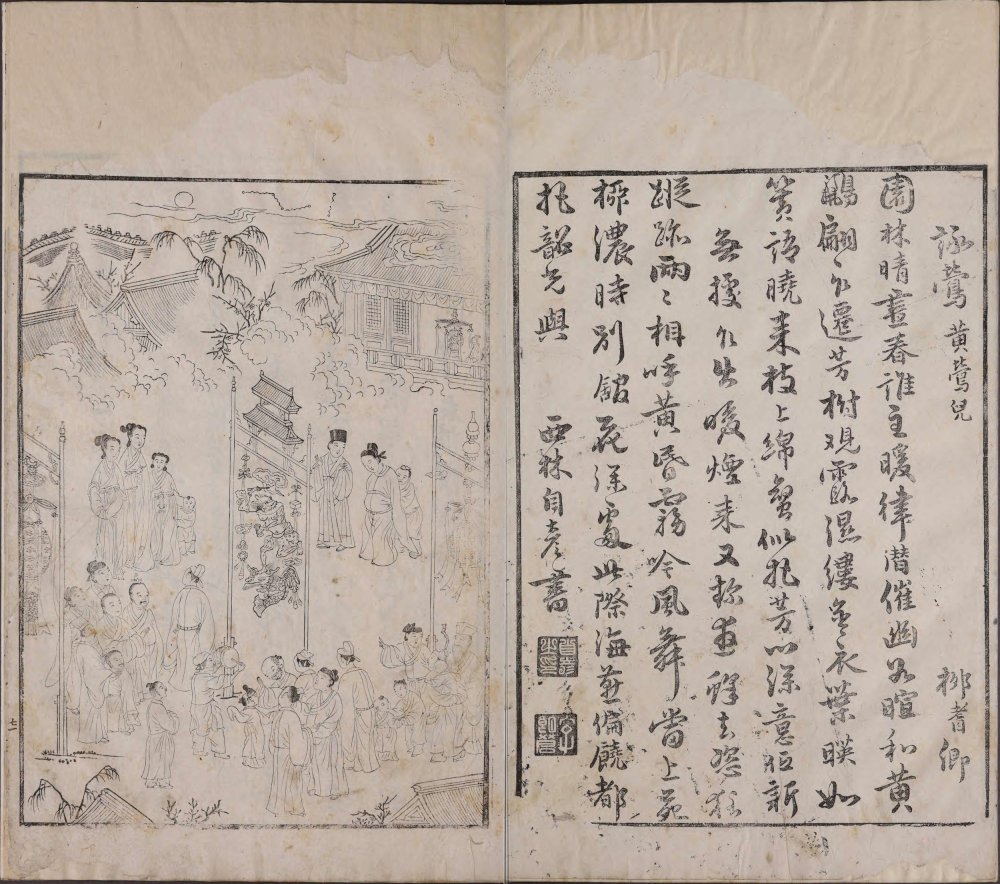 詠鶯 黃鶯兒 柳耆卿
園林晴晝春誰主暖律潛催幽谷暄和黃
鸝翩〻乍遷芳樹觀露濕縷金衣葉暎如
簧語曉來枝上綿蠻似把芳心深意低訴
無據乍出暖煙來又趂遊蜂去恣狂
蹤跡兩〻相呼黃昏霧吟風舞當上苑
柳濃時別館花深處此際海燕偏饒都
把韶光與 西林自彥書